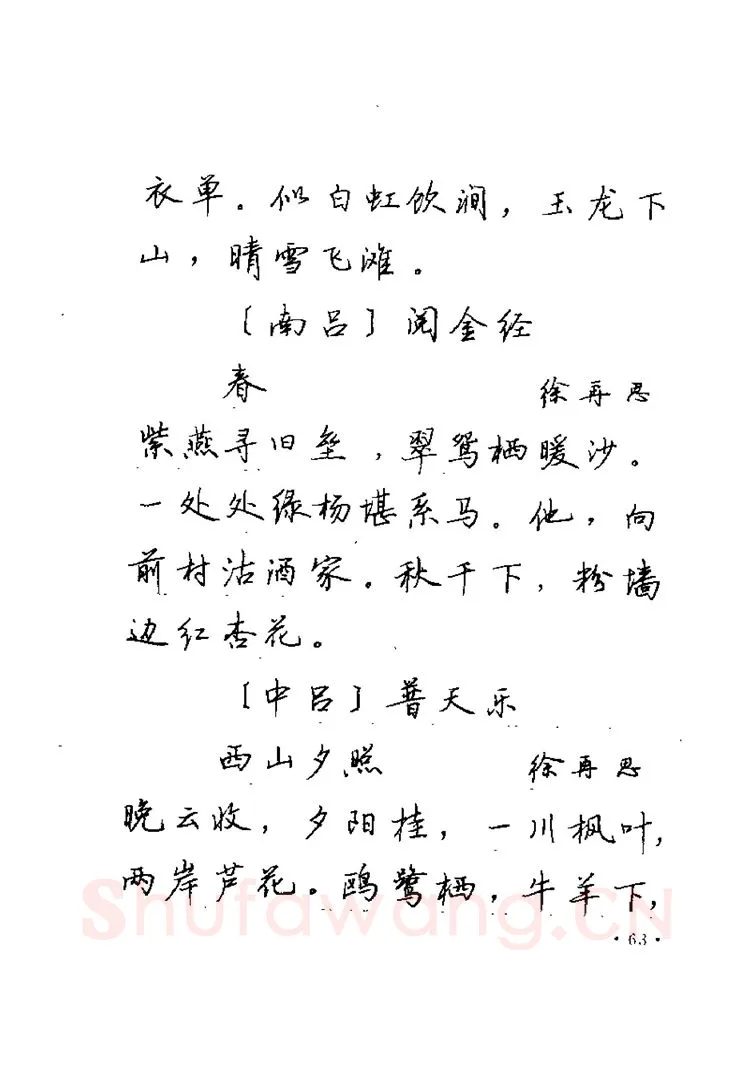 衣单。似白虹饮涧，玉龙下
山，晴雪飞滩。
〔南吕〕阅金经
春 徐再思
紫燕寻旧垒，翠鸳栖暖沙。
一处处绿杨堪系马。他，向
前村沽酒家。秋千下，粉墙
边红杏花。
〔中吕〕普天乐
西山夕照 徐再思
晚云收，夕阳挂，一川枫叶，
两岸芦花。鸥鹭栖，牛羊下，
Shufawang.CN
·63·